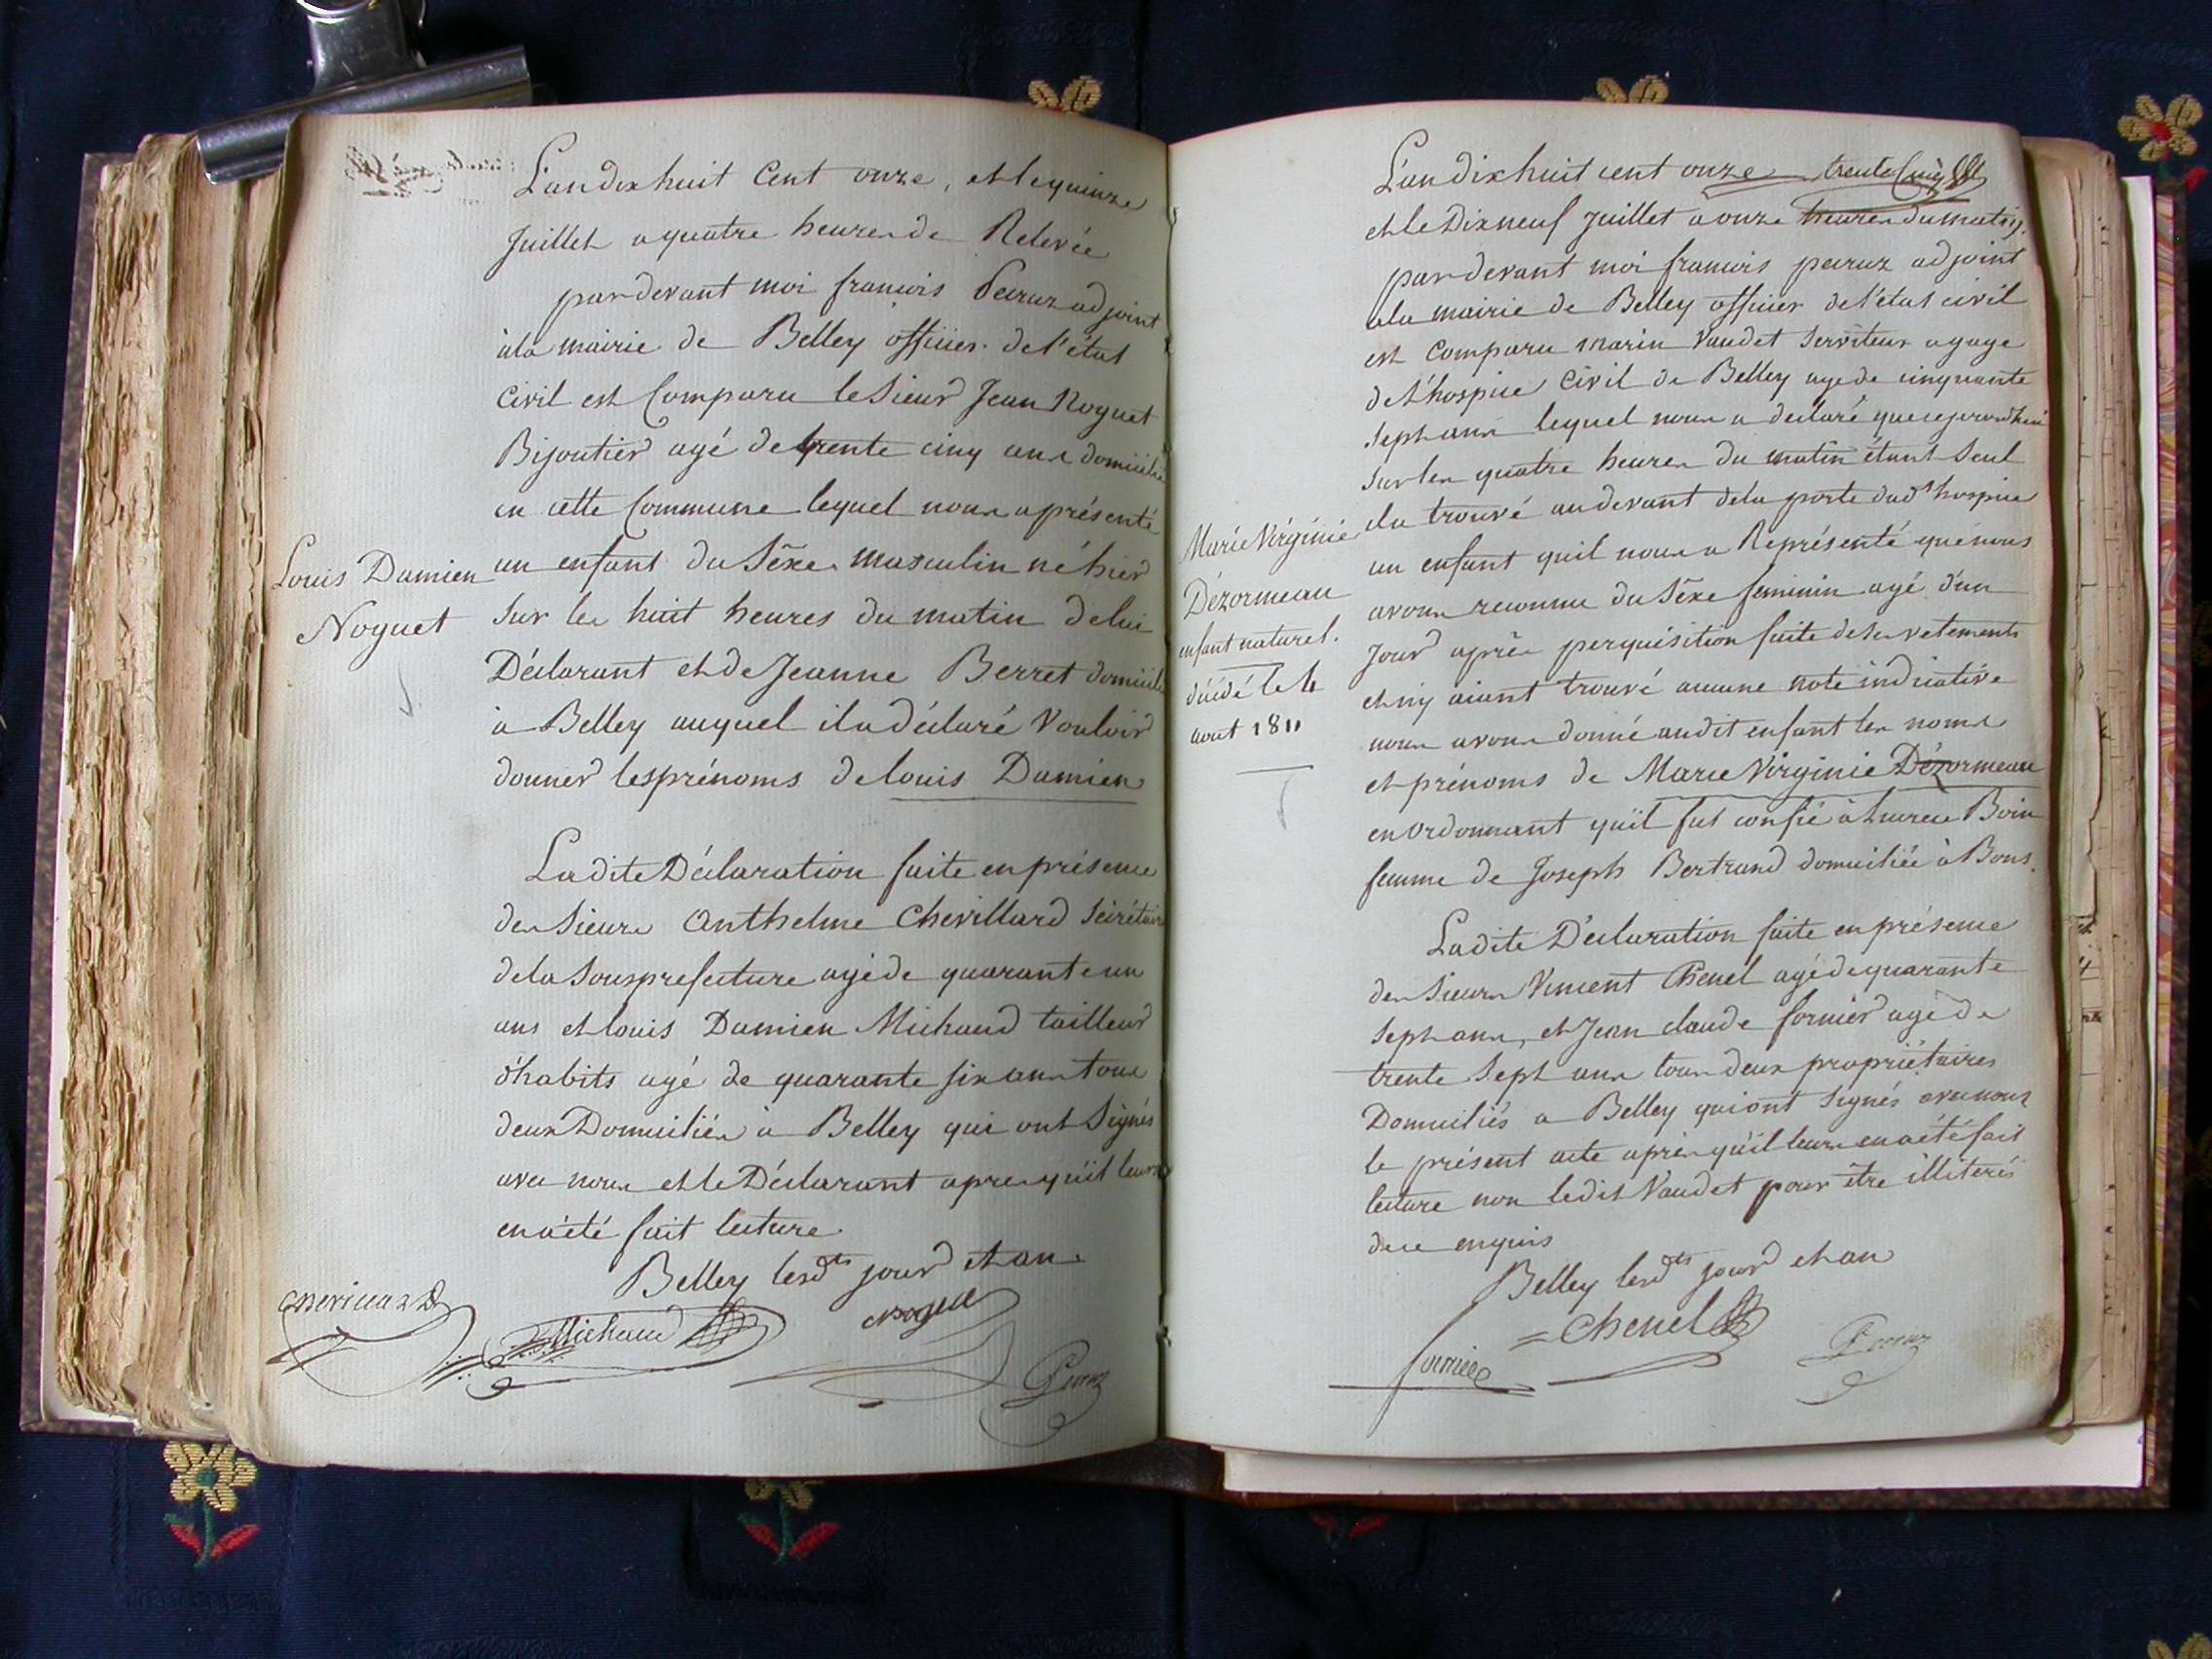 L'an dix huit Cent onze, et le quinze
Juillet a quatre heures de Relevée
pardevant moi francois Peiruz adjoint
à la mairie de Belley officier de l'état
Civil est Comparu le Sieur Jean Noguet
Bijoutier agé de trente cinq ans domicilié
en cette Commune lequel nous a présenté
un enfant du Sèxe masculin né hier
Sur les huit heures du matin de lui
Déclarant et de Jeanne Berret domicilié
à Belley auquel il a déclaré Vouloir
donner les prénoms de louis Damien
Louis Damien
Noguet
La dite Déclaration faite en présence
des Sieurs Anthelme Chevillard Sécrétaire
de la Sousprefecture agé de quarante un
ans et louis Damien Michaud tailleur
d'habits agé de quarante six ans tous
deux Domiciliés à Belley qui ont Signés
avec nous et le Déclarant apres qu'il leurs
en a été fait lecture
Belley lesdts jour et an
Michaud
L'an dix huit cent onze trente Cinq
et le Dix neuf Juillet a onze heures du matin
par devant moi francois peiruz adjoint
a la mairie de Belley officier de l'état civil
est Comparu marin Vaudet Serviteur a gage
de l'hospice Civil de Belley agé de cinquante
Sept ans lequel nous a déclaré que cejourdhui
Sur les quatre heures du matin étant Seul
il a trouvé au devant de la porte dudt hospice
un enfant quil nous a Représenté que nous
avons reconnu du Sèxe feminin agé d'un
Jour après perquisition faite de ses vetements
et n'y aiant trouvé aucune note indicative
nous avons donné audit enfant les noms
et prénoms de Marie Virginie Dézormeau
en ordonnant qu'il fut confié à Boin
femme de Joseph Bertrand domiciliée à Bons.
Marie Virginie
Dézormeau
enfant naturel.
décédé le 4
aout 1811
La dite Déclaration faite en présence
des Sieurs Vincent Chenel agé de quarante
Sept ans, et Jean claude fornier agé de
trente Sept ans tous deux propriétaires
Domiciliés a Belley qui ont Signés avec nous
le présent acte après qu'il leurs en a été fait
lecture non ledit Vaudet pour être illiteré
de ce enquis
Belley lesdts jour et an
Chenel